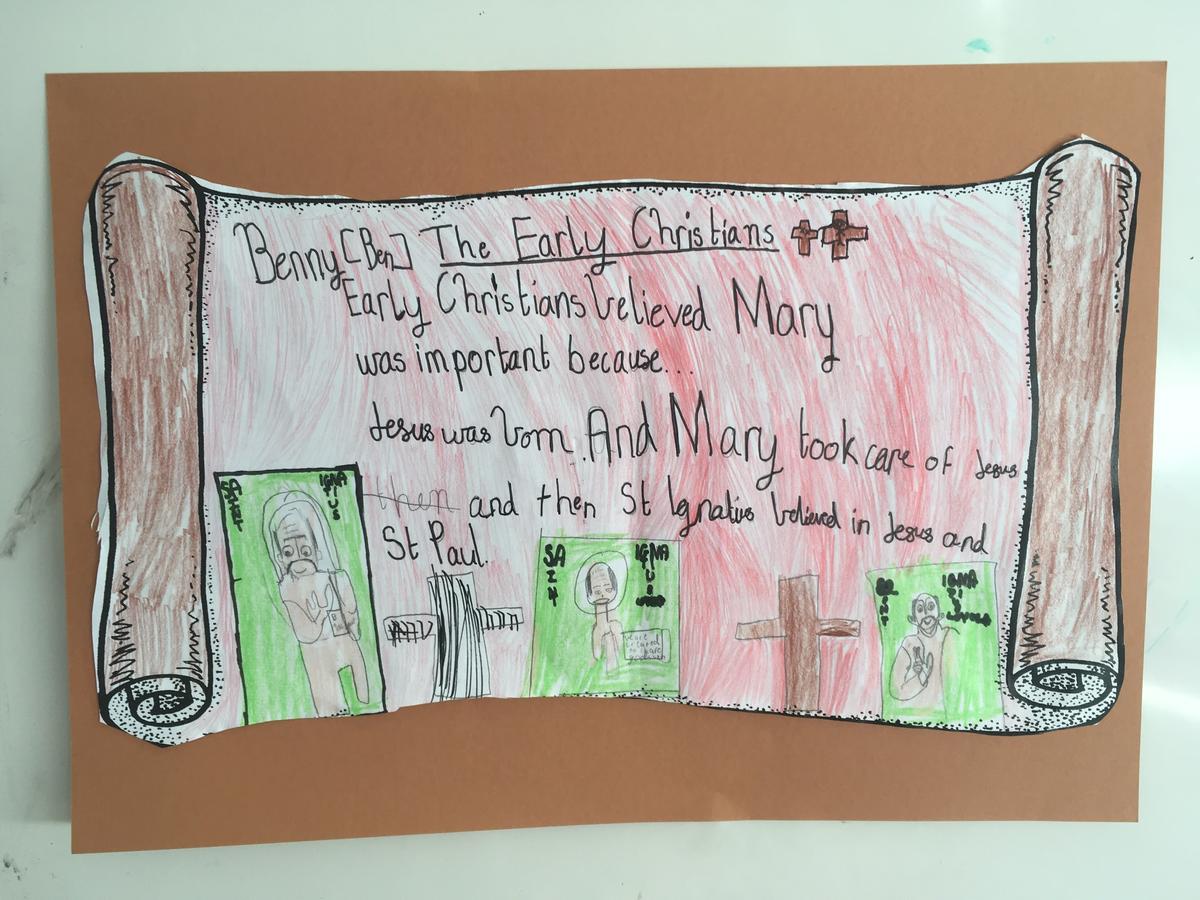 Benny [Ben] The Early Christians
Early Christians believed Mary
was important because...
Jesus was born. And Mary took care of Jesus
then and then St Ignatius believed in Jesus and
St Paul.
IGNATIUS
SAINT IGNATIUS
IGNATIUS